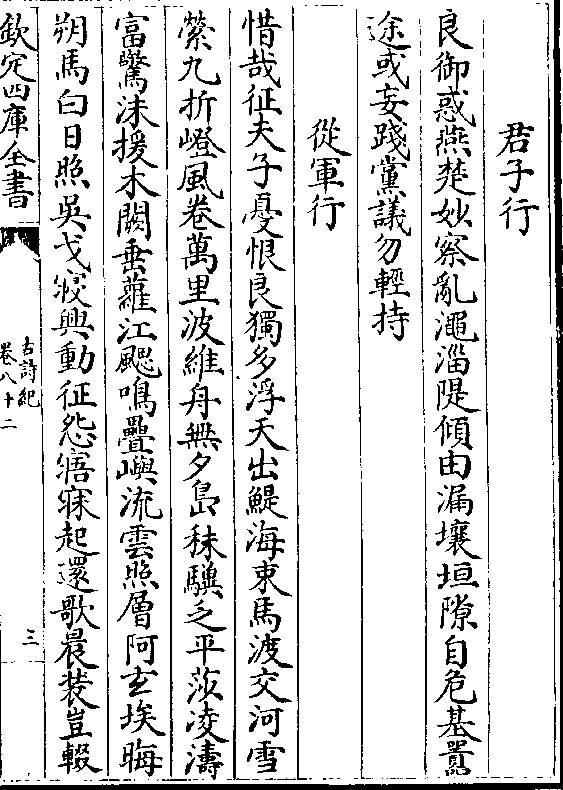 君子行
良御惑燕楚妙察亂澠淄隄傾由漏壤垣隙自危基囂
途或妄踐黨議勿輕持
從軍行
惜哉征夫子憂恨良獨多浮天出鯷海束馬渡交河雪
縈九折嶝風卷萬里波維舟無夕島秣驥乏平莎凌濤
富驚沫援木闕垂蘿江颸鳴疊嶼流雲照層阿玄埃晦
朔馬白日照吳戈寢興動征怨寤寐起還歌晨裝豈輟
欽定四庫全書
古詩紀
卷八十二
三